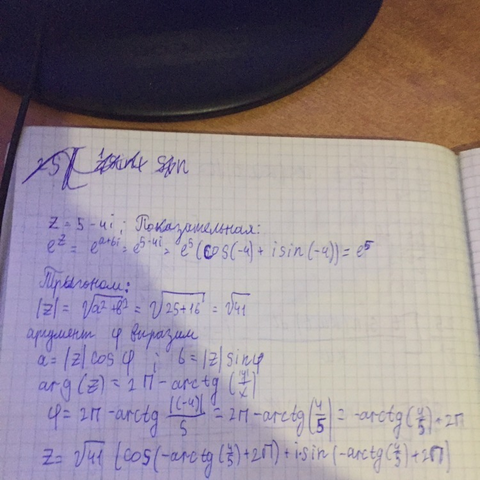 z = 5 - 4i ; Показательная:
e^z = e^{a+bi} = e^{5-4i} = e^5 (cos(-4) + i sin(-4)) = e^5
Тригоном:
|z| = √(a² + b²) = √(25+16) = √41
аргумент φ выразим
a = |z| cos φ ; b = |z| sin φ
arg(z) = 2π - arctg(|y|/x)
φ = 2π - arctg |(-4)|/5 = 2π - arctg(4/5) = -arctg(4/5) + 2π
z = √41 (cos(-arctg(4/5) + 2π) + i sin(-arctg(4/5) + 2π))